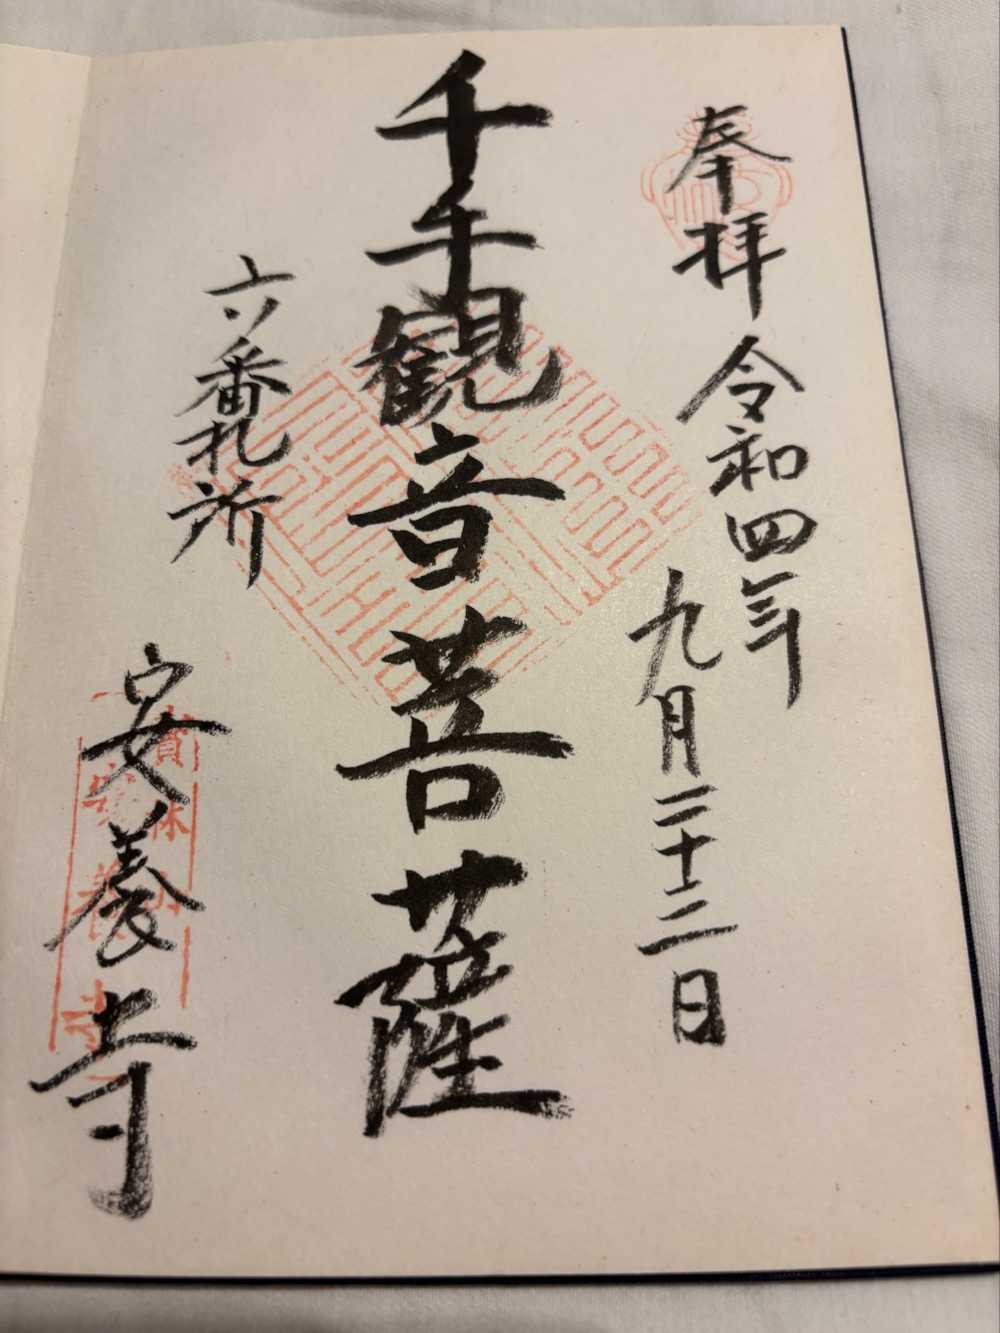 奉拝 令和四年
九月二十二日
千手観音菩薩
六番札所
安養寺
寶林山
安養寺